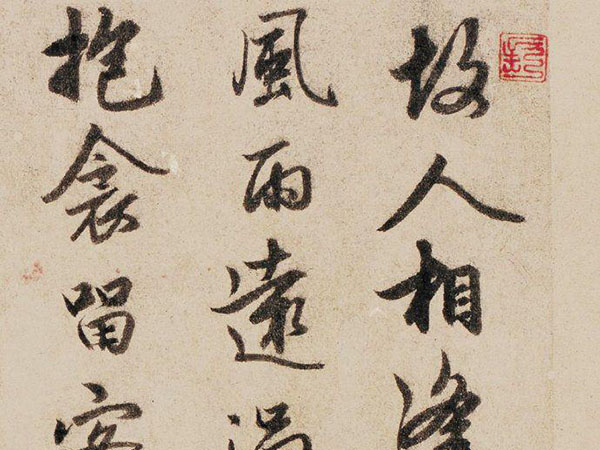 故人相逢
風雨遠
抱衾留